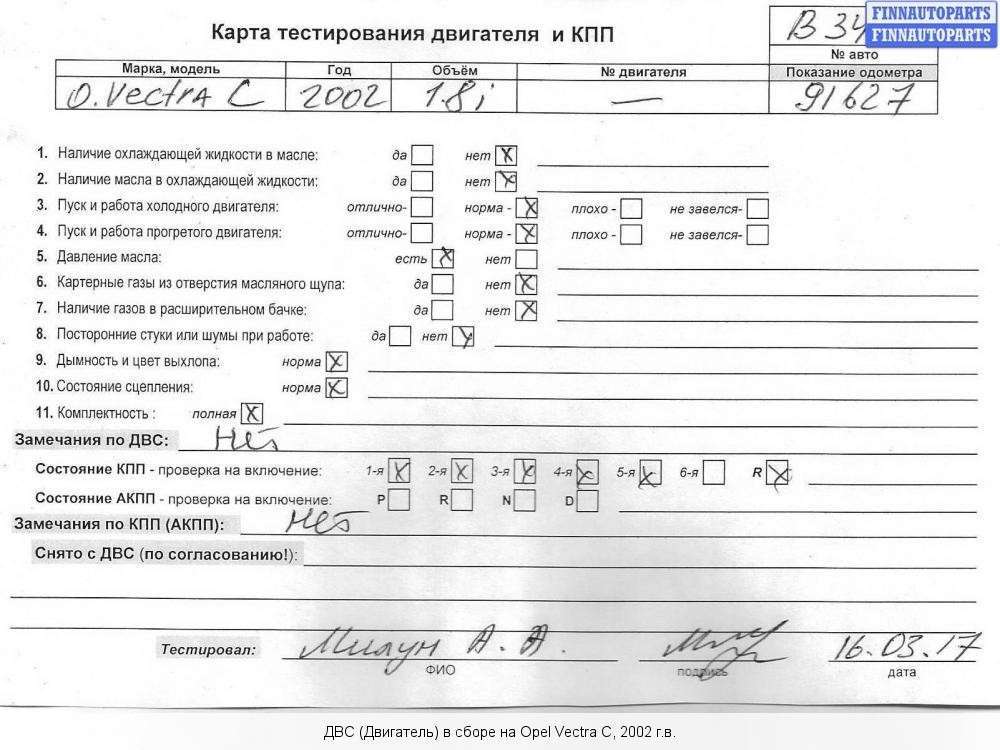 FINNAUTOPARTS
FINNAUTOPARTS
Карта тестирования двигателя и КПП
В 34
№ авто
Марка, модель Год Объём № двигателя Показание одометра
O. Vectra C 2002 1.8i — 91627
1. Наличие охлаждающей жидкости в масле: да нет X
2. Наличие масла в охлаждающей жидкости: да нет X
3. Пуск и работа холодного двигателя: отлично- норма - X плохо - не завелся-
4. Пуск и работа прогретого двигателя: отлично- норма - X плохо - не завелся-
5. Давление масла: есть X нет
6. Картерные газы из отверстия масляного щупа: да нет X
7. Наличие газов в расширительном бачке: да нет X
8. Посторонние стуки или шумы при работе: да нет X
9. Дымность и цвет выхлопа: норма X
10. Состояние сцепления: норма X
11. Комплектность : полная X
Замечания по ДВС: Нет
Состояние КПП - проверка на включение: 1-я X 2-я X 3-я X 4-я X 5-я X 6-я R X
Состояние АКПП - проверка на включение: P R N D
Замечания по КПП (АКПП): Нет
Снято с ДВС (по согласованию!):
Тестировал: Милун А. А. 16.03.17
ФИО подпись дата
ДВС (Двигатель) в сборе на Opel Vectra C, 2002 г.в.